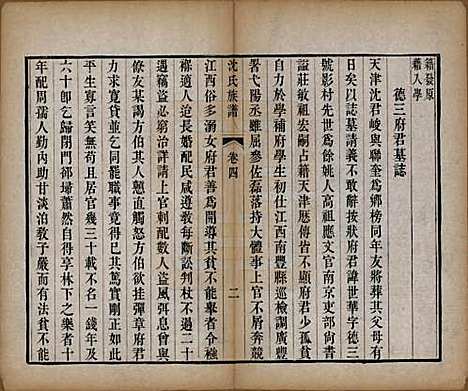 籍發原
籍入學
德三府君墓誌
天津沈君峻與聯奎爲鄉榜同年友將葬其父母有
日矣以誌墓請義不敢辭按狀府君諱世华字德三
號影村先世爲餘姚人高祖應文官南京吏部尚書
諡莊敏祖宏嗣占籍天津傳皆不顯府君少孤貧
自力於學補府學生初仕江西南豐縣巡檢調廣豐
署弋陽丞雖屈參佐磊落持大體事上官不屑奔競
沈氏族譜
卷四
二
江西俗多溺女府君善爲開導其貧不能舉者分祿
褓適人迫長婚配民咸遵教每斷訟判杖不過二十
遇竊盜必窮治詳請上司刺配數人盜風弭息嘗以
僚友某謁方伯其人戇直觸怒伯欲挂彈章府君
力寬解之竟得不罷職事竟亦不令其人知也
平生寡言笑居官幾三十載不名一錢年及
六十卽乞歸閉門卻埽蕭然自得享林下之樂者十
年配周孺人勤內助甘淡泊教子嚴而有法貧不能